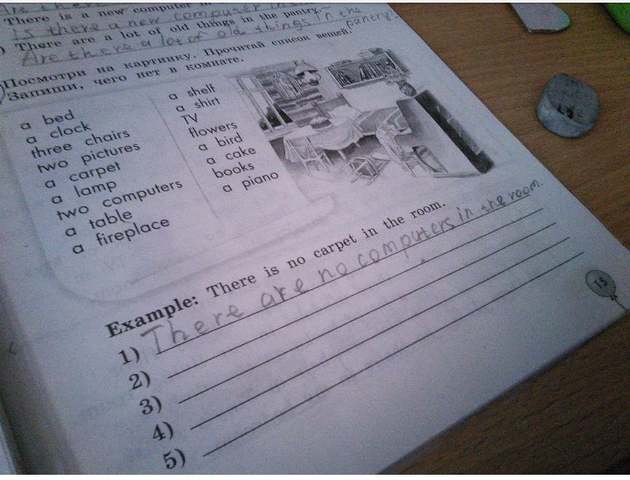 There is a new computer
Is there a new computer in
) There are a lot of old things in the pantry.
Are there a lot of old things in the pantry?
Посмотри на картинку. Прочитай список вещей.
Запиши, чего нет в комнате.
a bed
a clock
three chairs
two pictures
a carpet
a lamp
two computers
a table
a fireplace
a shelf
a shirt
TV
flowers
a bird
a cake
books
a piano
Example: There is no carpet in the room.
1) There are no computers in the room.
2)
3)
4)
5)
15